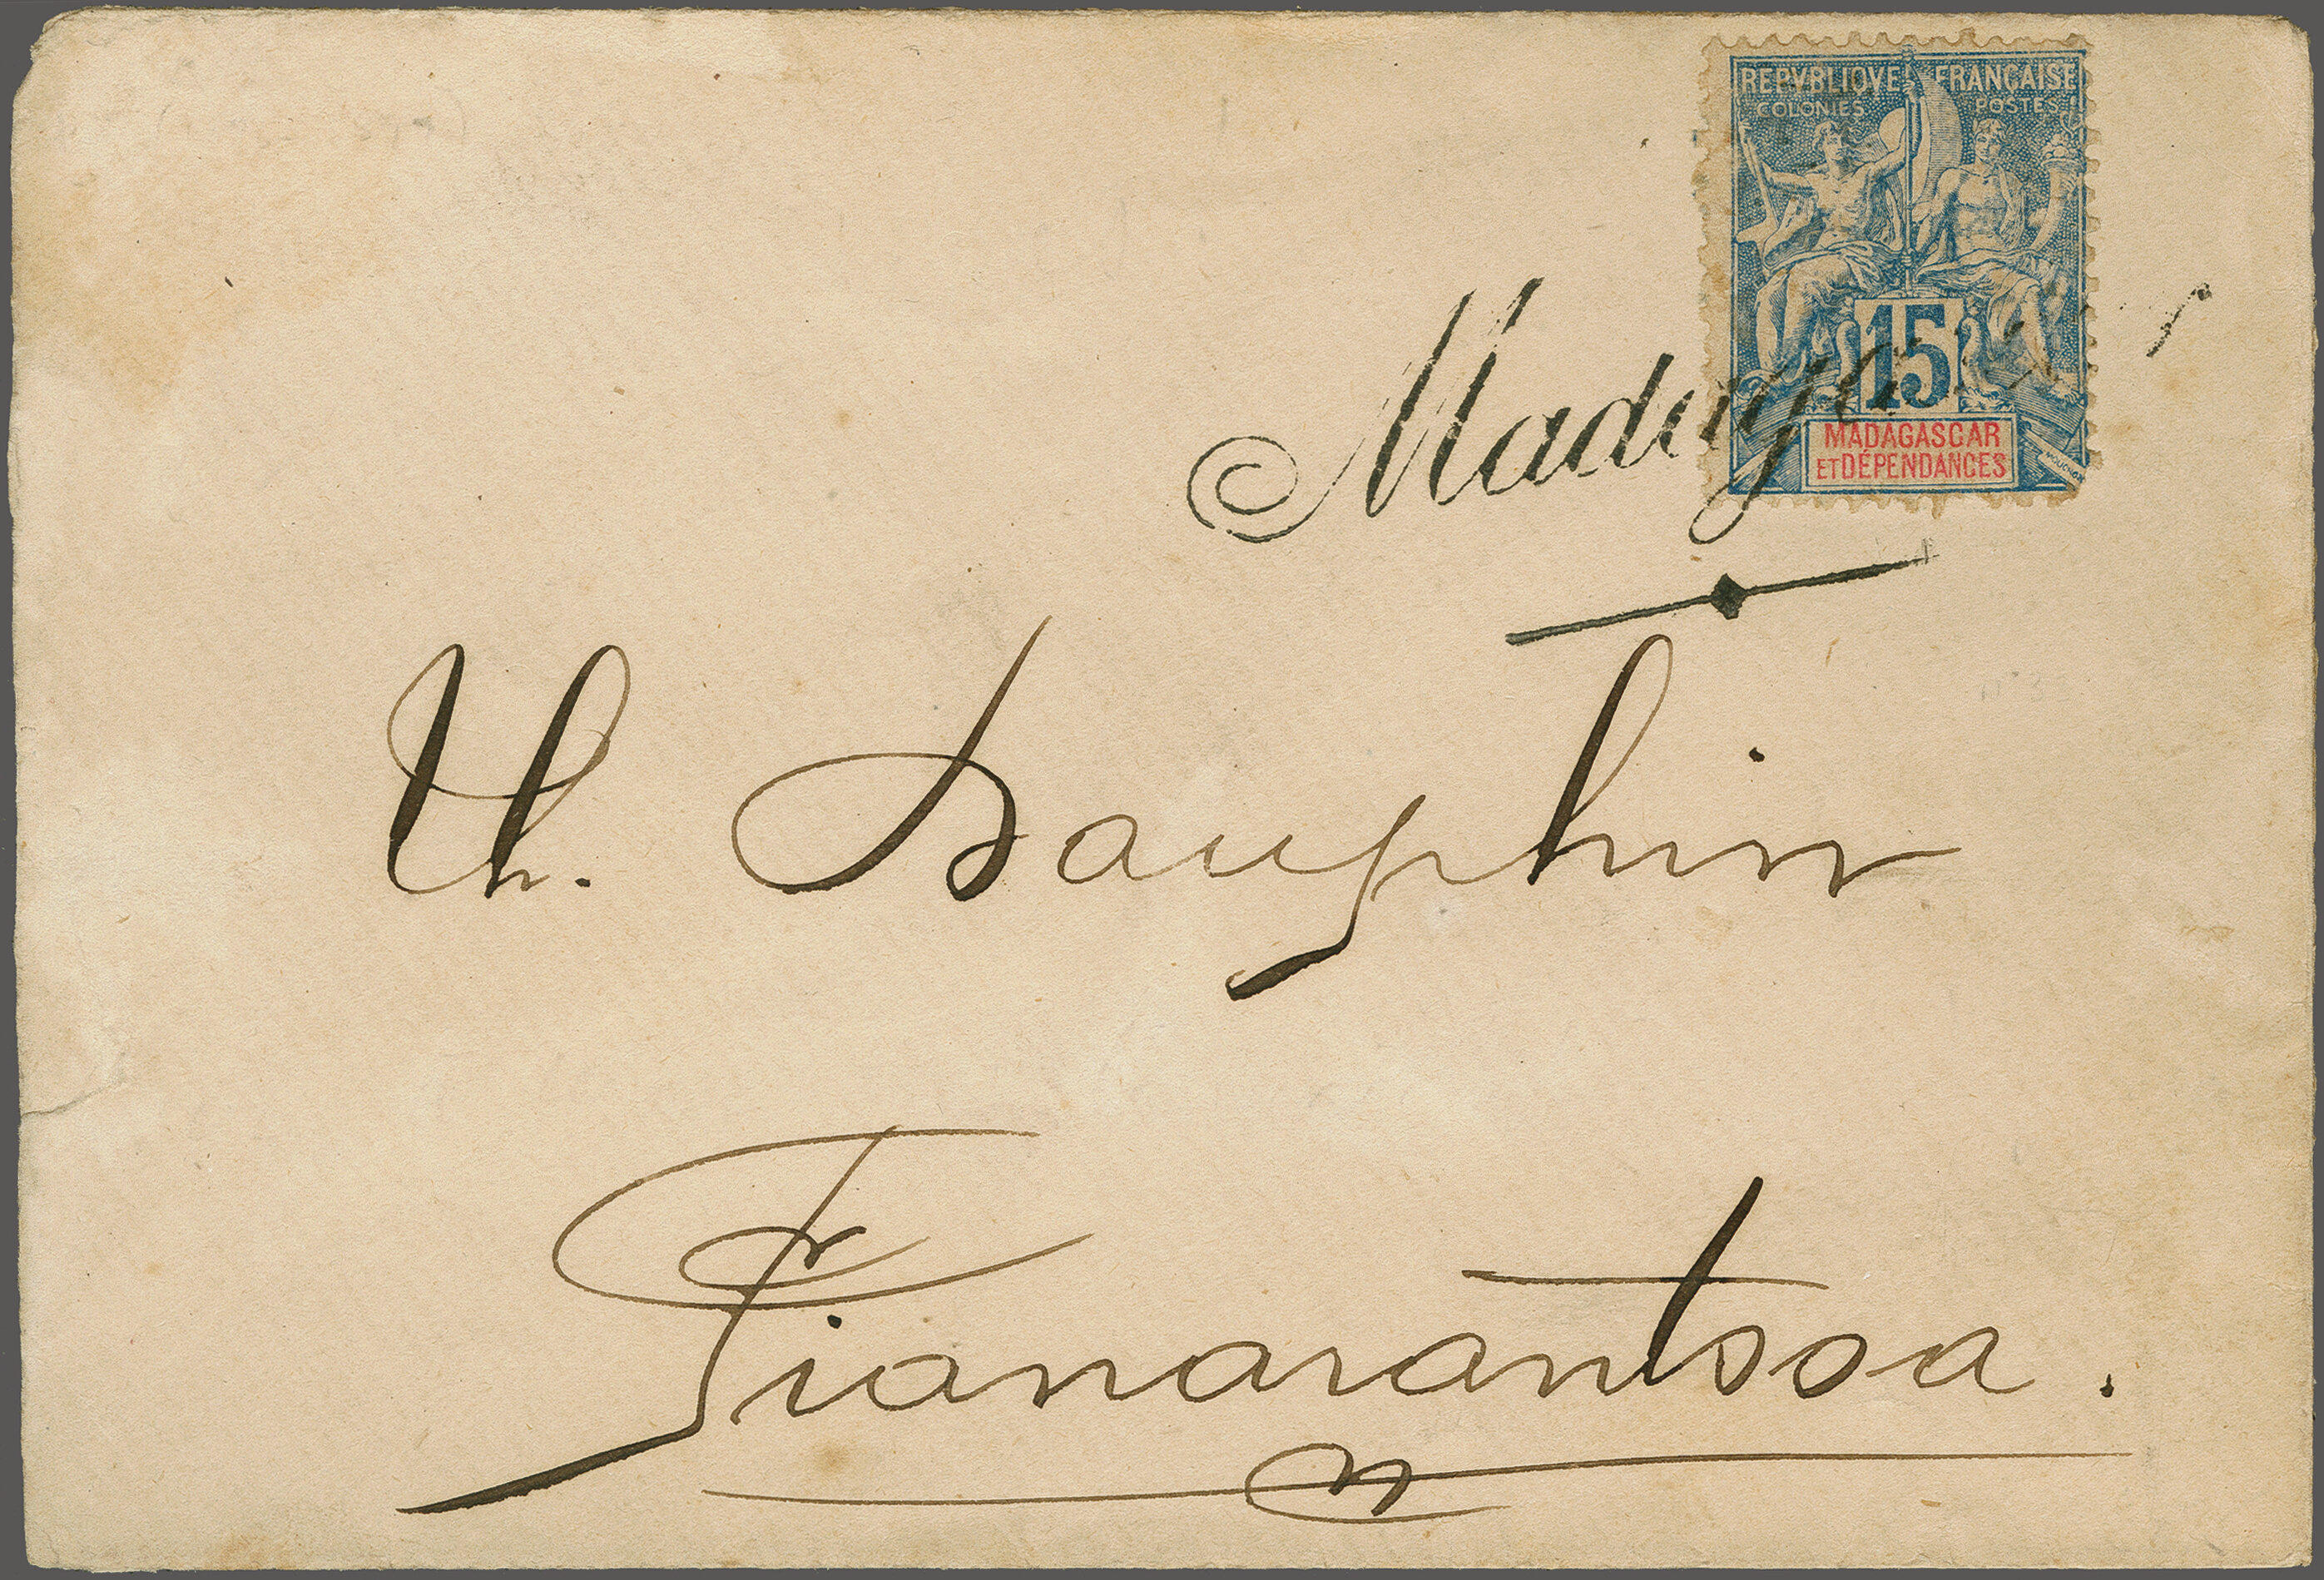 REPVBLIQVE FRANÇAISE
COLONIES POSTES
15
MADAGASCAR
ET DÉPENDANCES
MOUCHON
Th. Dauphin
Fianarantsoa.